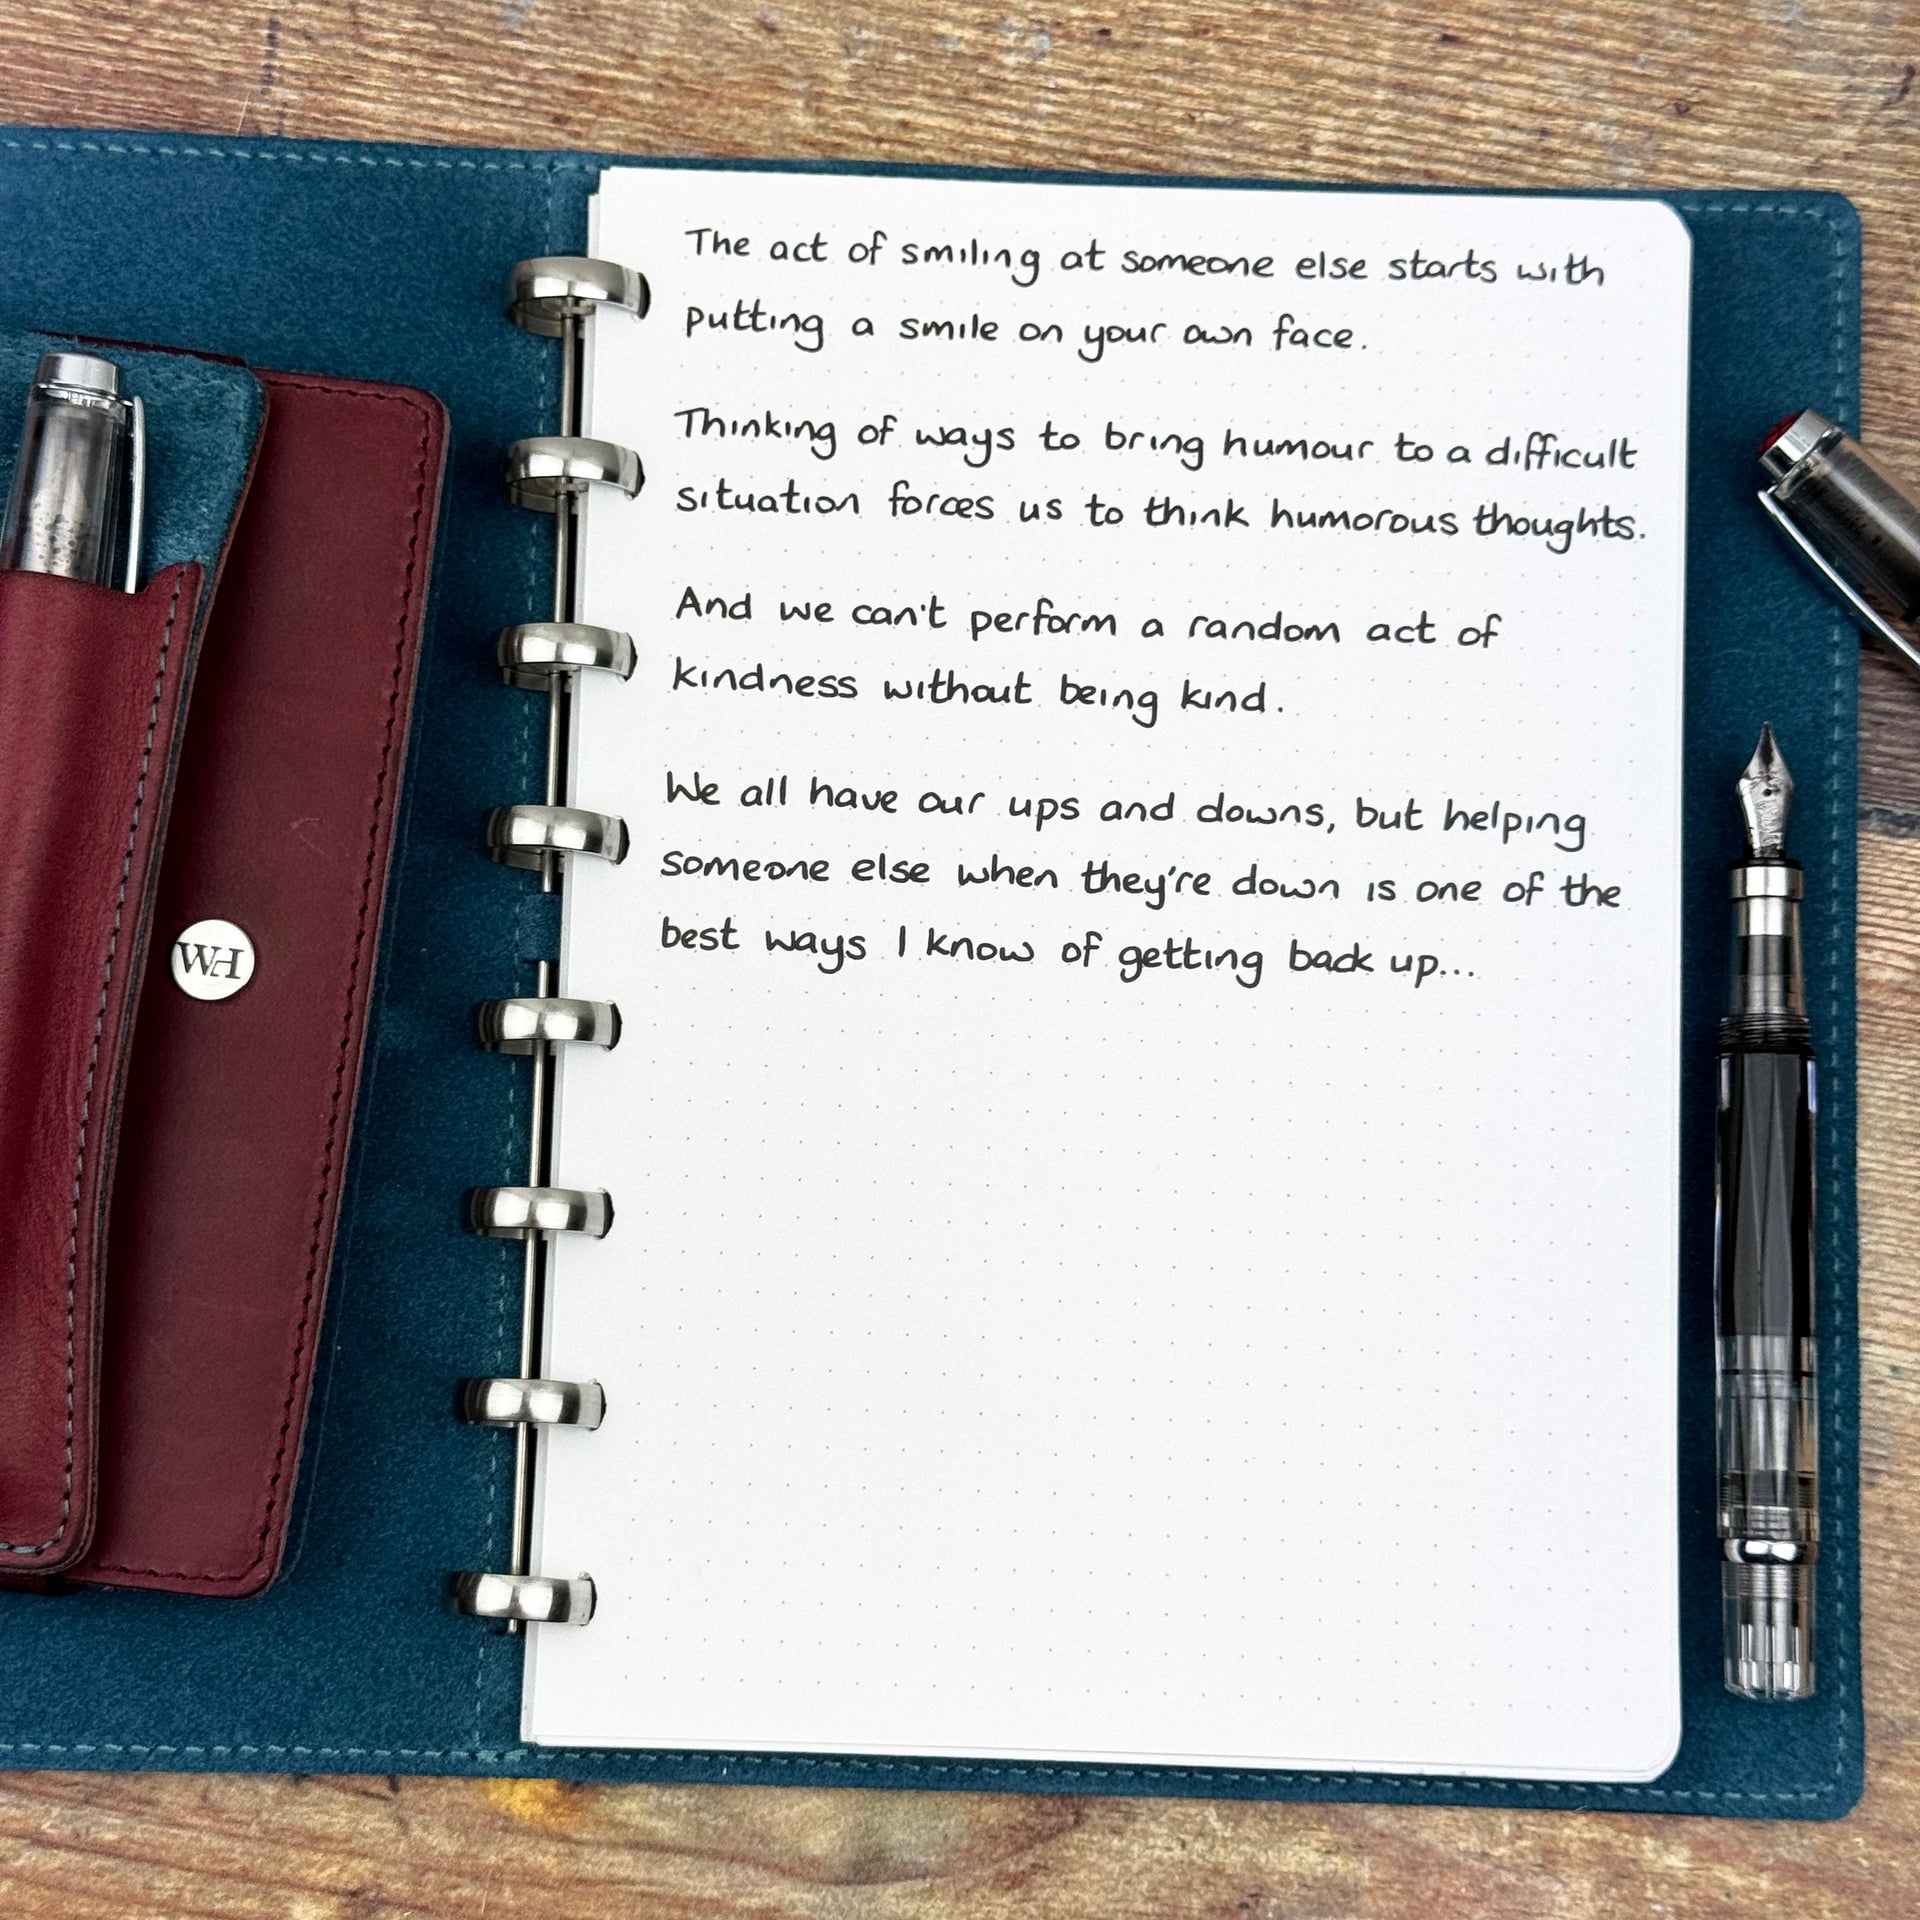 The act of smiling at someone else starts with
putting a smile on your own face.
Thinking of ways to bring humour to a difficult
situation forces us to think humorous thoughts.
And we can't perform a random act of
kindness without being kind.
We all have our ups and downs, but helping
someone else when they're down is one of the
best ways I know of getting back up...
WH